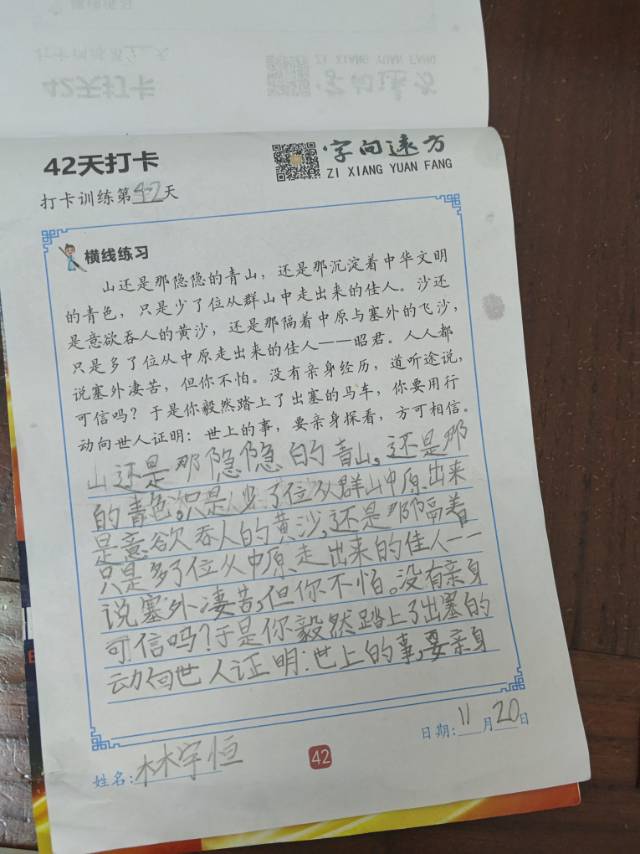 42天打卡
字向远方
ZI XIANG YUAN FANG
打卡训练第42天
横线练习
山还是那隐隐的青山，还是那沉淀着中华文明
的青色，只是少了位从群山中走出来的佳人。沙还
是意欲吞人的黄沙，还是那隔着中原与塞外的飞沙，
只是多了位从中原走出来的佳人——昭君。人人都
说塞外凄苦，但你不怕。没有亲身经历，道听途说，
可信吗？于是你毅然踏上了出塞的马车，你要用行
动向世人证明：世上的事，要亲身探看，方可相信。
山还是那隐隐的青山。还是那
的青色。只是少了位从群山中原出来
是意欲吞人的黄沙，还是那隔着
只是多了位从中原走出来的佳人一一
说塞外凄苦，但你不怕。没有亲身
可信吗？于是你毅然踏上了出塞的
动向世人证明：世上的事，要亲身
日期：11月20日
姓名：林宇恒
42